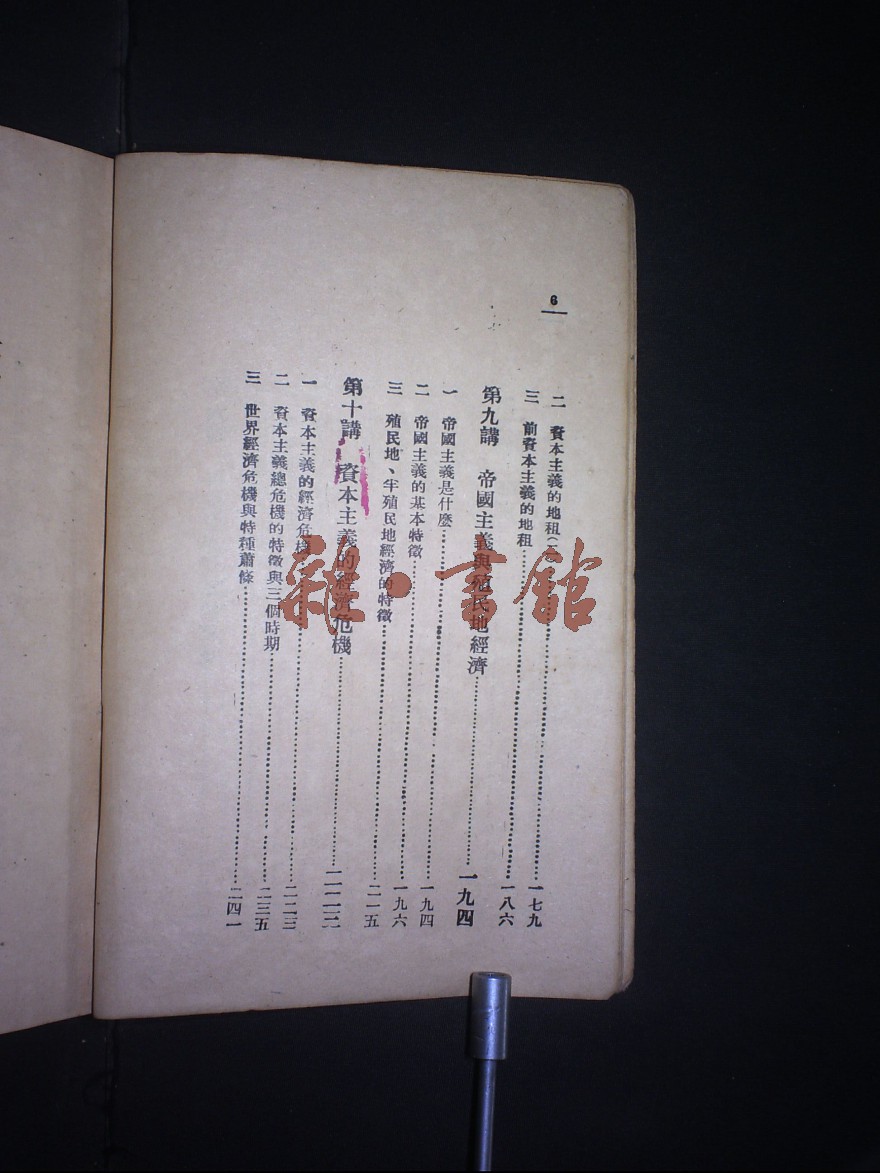 6
二　資本主義的地租(二)……一七九
三　前資本主義的地租……一八六
第九講　帝國主義與殖民地經濟……一九四
一　帝國主義是什麼……一九四
二　帝國主義的基本特徵……一九六
三　殖民地、半殖民地經濟的特徵……二一五
第十講　資本主義的經濟危機……二二三
一　資本主義的經濟危機……二二三
二　資本主義總危機的特徵與三個時期……二三五
三　世界經濟危機與特種蕭條……二四一
雜·書館